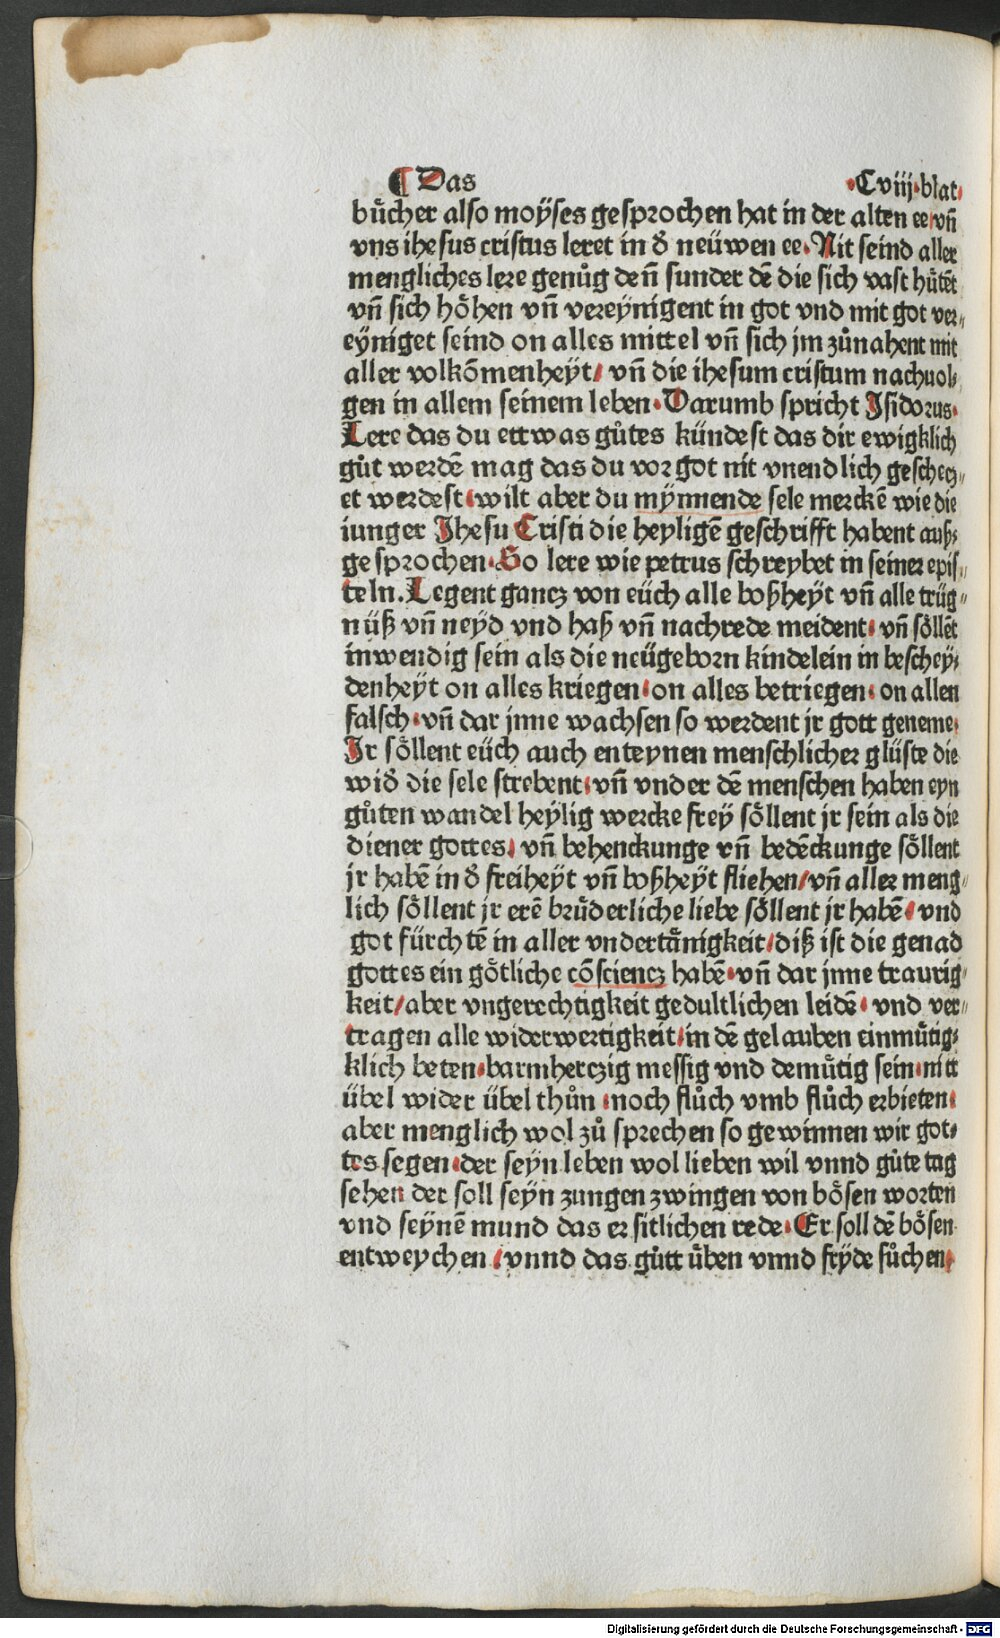 ¶ Das .Cviij.blat.
bůcher also moÿses gesprochen hat in der alten ee/vñ
vns ihesus cristus leret in d̕ neüwen ee. Nit seind aller
mengliches lere genůg deñ sunder dē die sich vast hütēt
vñ sich hoͤhen vñ vereynigent in got vnd mit got ver⸗
eyniget seind on alles mittel vñ sich jm zůnahent mit
aller volkōmenheÿt/ vñ die ihesum cristum nachuol⸗
gen in allem seinem leben. Darumb spricht Isidorus.
Lere das du ettwas gůtes kündest das dir ewigklich
gůt werdē mag das du vor got nit vnendlich geschecz⸗
et werdest. wilt aber du mÿnnende sele merckē wie die
iunger Jhesu Cristi die heyligē geschrifft habent auß⸗
gesprochen. So lere wie petrus schreybet in seiner epis⸗
teln. Legent gancz von eüch alle boßheÿt vñ alle trüg⸗
nüß vñ neÿd vnd haß vñ nachrede meident. vñ soͤllēt
inwendig sein als die neügeborn kindelein in beschey⸗
denheÿt on alles kriegen. on alles betriegen. on allen
falsch. vñ dar jnne wachsen so werdent jr gott geneme.
Ir soͤllent eüch auch enteynen menschlicher glüste die
wid̕ die sele strebent. vñ vnder dē menschen haben eyn
gůten wandel heÿlig wercke freÿ soͤllent jr sein als die
diener gottes. vñ behenckunge vñ bedēckunge soͤllent
jr habē in d̕ freiheÿt vñ boßheÿt fliehen/ vñ aller meng⸗
lich soͤllent jr erē bruͤderliche liebe soͤllent jr habē/ vnd
got fürchtē in aller vndertaͤnigkeit/ diß ist die genad
gottes ein goͤtliche cōsciencz habē. vñ dar jnne traurig⸗
keit/ aber vngerechtigkeit gedultlichen leidē. vnd ver⸗
tragen alle widerwertigkeit/ in dē gelauben einmuͤtig⸗
klich beten. barmherczig messig vnd demuͤtig sein. nitt
übel wider übel thůn. noch flůch vmb flůch erbieten.
aber menglich wol zů sprechen so gewinnen wir got⸗
tes segen. der seyn leben wol lieben wil vnnd gůte tag
sehen der soll seyn zungen zwingen von boͤsen worten
vnd seynē mund das er sitlichen rede. Er soll dē boͤsen
entweychen/ vnnd das gůtt uͤben vnnd frÿde sůchen.
Digitalisierung gefördert durch die Deutsche Forschungsgemeinschaft - DFG